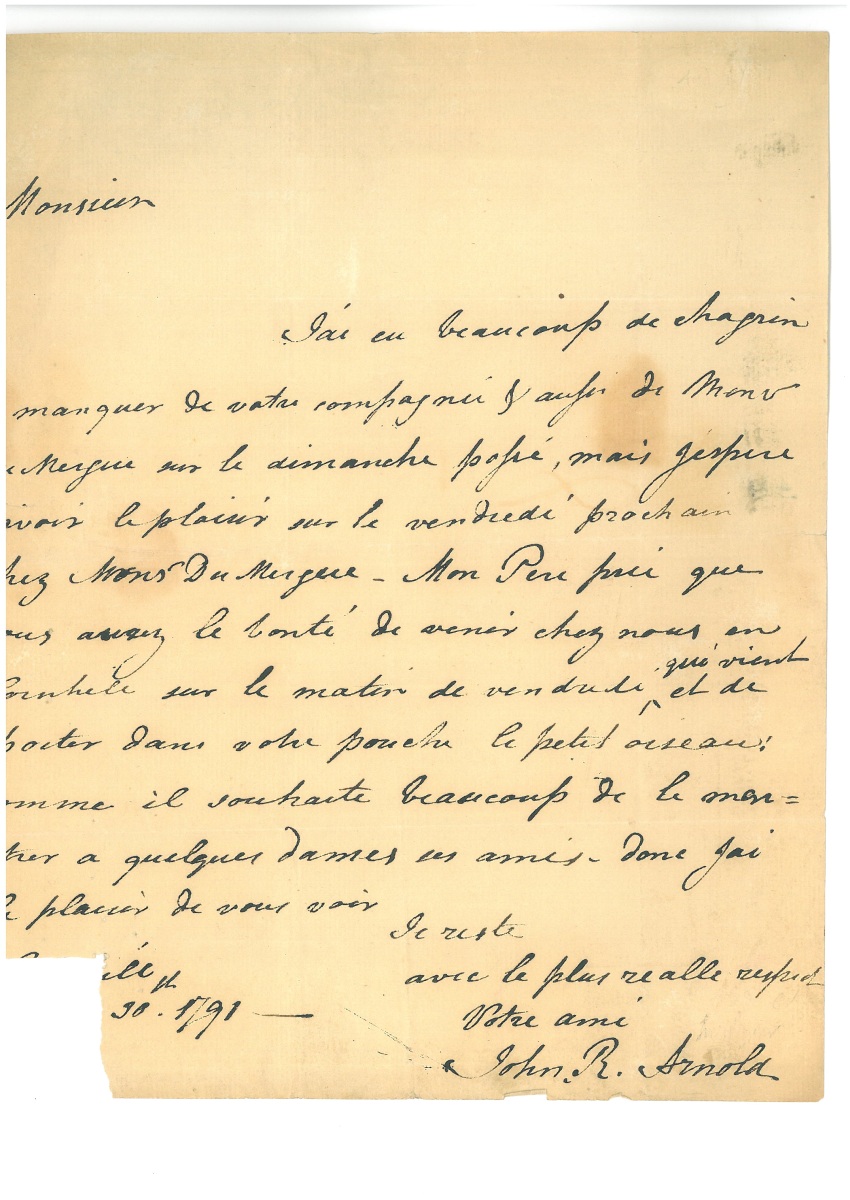 Monsieur
J'ai eu beaucoup de chagrin
manquer de votre compagnie & aussi de Monsr
Mergue sur le dimanche passé, mais j'espere
avoir le plaisir sur le vendredi prochain
hez Monsr Du Mergue - Mon Pere prie que
ous aurez le bonté de venir chez nous en
Cornhill sur le matin de vendredi qui vient et de
porter dans votre pouche le petit oiseau:
omme il souhaite beaucoup de le mon=
trer a quelques dames ses amis - donc J'ai
plaisir de vous voir
Je reste
avec le plus realle respect
30st. 1791 —
Votre ami
John. R. Arnold